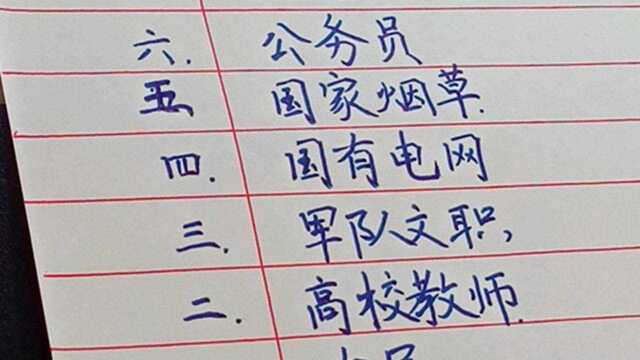 六. 公务员
五 国家烟草.
四. 国有电网
三. 军队文职,
二. 高校教师.